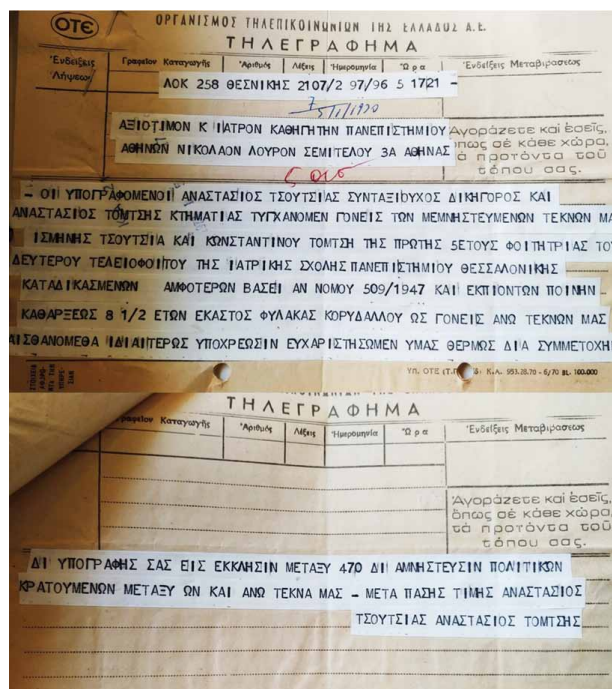 ΟΤΕ
ΟΡΓΑΝΙΣΜΟΣ ΤΗΛΕΠΙΚΟΙΝΩΝΙΩΝ ΤΗΣ ΕΛΛΑΔΟΣ Α.Ε.
ΤΗΛΕΓΡΑΦΗΜΑ
Ἐνδείξεις Λήψεως
Γραφεῖον Καταγωγῆς Ἀριθμός Λέξεις Ἡμερομηνία Ὥρα
Ἐνδείξεις Μεταβιβάσεως
ΛΟΚ 258 ΘΕΣΝΙΚΗΣ 2107/2 97/96 5 1721 -
ΑΞΙΟΤΙΜΟΝ Κ ΙΑΤΡΟΝ ΚΑΘΗΓΗΤΗΝ ΠΑΝΕΠΙΣΤΗΜΙΟΥ
ΑΘΗΝΩΝ ΝΙΚΟΛΑΟΝ ΛΟΥΡΟΝ ΣΕΜΙΤΕΛΟΥ 3Α ΑΘΗΝΑΣ
Ἀγοράζετε καί ἐσεῖς,
ὅπως σέ κάθε χώρα,
τά προτόντα τοῦ
τόπου σας.
- ΟΙ ΥΠΟΓΡΑΦΟΜΕΝΟΙ ΑΝΑΣΤΑΣΙΟΣ ΤΣΟΥΤΣΙΑΣ ΣΥΝΤΑΞΙΟΥΧΟΣ ΔΙΚΗΓΟΡΟΣ ΚΑΙ
ΑΝΑΣΤΑΣΙΟΣ ΤΟΜΤΣΗΣ ΚΤΗΜΑΤΙΑΣ ΤΥΓΧΑΝΟΜΕΝ ΓΟΝΕΙΣ ΤΩΝ ΜΕΜΝΗΣΤΕΥΜΕΝΩΝ ΤΕΚΝΩΝ ΜΑ
ΙΣΜΗΝΗΣ ΤΣΟΥΤΣΙΑ ΚΑΙ ΚΩΝΣΤΑΝΤΙΝΟΥ ΤΟΜΤΣΗ ΤΗΣ ΠΡΩΤΗΣ 5ΕΤΟΥΣ ΦΟΙΤΗΤΡΙΑΣ ΤΟ
ΔΕΥΤΕΡΟΥ ΤΕΛΕΙΟΦΟΙΤΟΥ ΤΗΣ ΙΑΤΡΙΚΗΣ ΣΧΟΛΗΣ ΠΑΝΕΠΙΣΤΗΜΙΟΥ ΘΕΣΣΑΛΟΝΙΚΗΣ
ΚΑΤΑΔΙΚΑΣΜΕΝΩΝ ΑΜΦΟΤΕΡΩΝ ΒΑΣΕΙ ΑΝ ΝΟΜΟΥ 509/1947 ΚΑΙ ΕΚΠΙΟΝΤΩΝ ΠΟΙΝΗΝ -
ΚΑΘΑΡΞΕΩΣ 8 1/2 ΕΤΩΝ ΕΚΑΣΤΟΣ ΦΥΛΑΚΑΣ ΚΟΡΥΔΑΛΛΟΥ ΩΣ ΓΟΝΕΙΣ ΑΝΩ ΤΕΚΝΩΝ ΜΑΣ
ΑΙΣΘΑΝΟΜΕΘΑ ΙΔΙΑΙΤΕΡΩΣ ΥΠΟΧΡΕΩΣΙΝ ΕΥΧΑΡΙΣΤΗΣΩΜΕΝ ΥΜΑΣ ΘΕΡΜΩΣ ΔΙΑ ΣΥΜΜΕΤΟΧΗ
ΥΠ. ΟΤΕ Κ.Α. 953.28.70 - 6/70 BL. 100.000
ΤΗΛΕΓΡΑΦΗΜΑ
Γραφεῖον Καταγωγῆς Ἀριθμός Λέξεις Ἡμερομηνία Ὥρα Ἐνδείξεις Μεταβιβάσεως
Ἀγοράζετε καί ἐσεῖς,
ὅπως σέ κάθε χώρα,
τά προτόντα τοῦ
τόπου σας.
ΔΙ ΥΠΟΓΡΑΦΗΣ ΣΑΣ ΕΙΣ ΕΚΚΛΗΣΙΝ ΜΕΤΑΞΥ 470 ΔΙ ΑΜΝΗΣΤΕΥΣΙΝ ΠΟΛΙΤΙΚΩΝ
ΚΡΑΤΟΥΜΕΝΩΝ ΜΕΤΑΞΥ ΩΝ ΚΑΙ ΑΝΩ ΤΕΚΝΑ ΜΑΣ - ΜΕΤΑ ΠΑΣΗΣ ΤΙΜΗΣ ΑΝΑΣΤΑΣΙΟΣ
ΤΣΟΥΤΣΙΑΣ ΑΝΑΣΤΑΣΙΟΣ ΤΟΜΤΣΗΣ